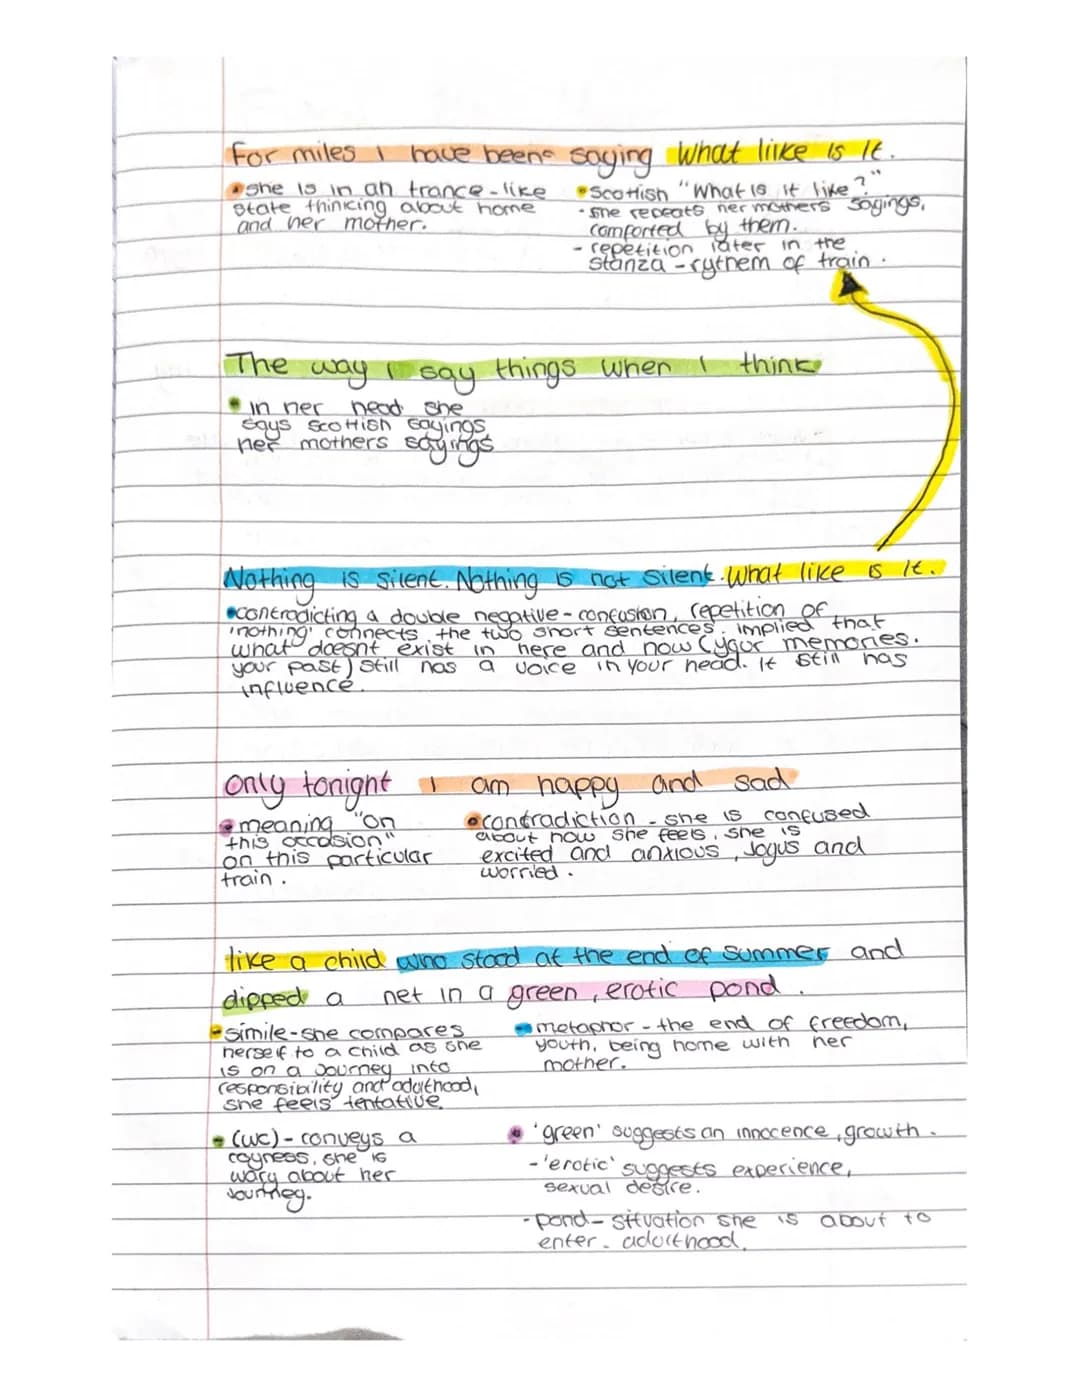 For miles I have been saying What like is it.
she is in an trance-like
state thinking about home
and her mother.
Scottish "What is it like?"
- she repeats her mothers sayings,
comforted by them.
- repetition later in the
stanza - rythem of train.
The way I say things when I think
in her head she
says Scottish sayings
her mothers sayings
Nothing is silent. Nothing is not silent. What like is it.
contradicting a double negative - confusion, repetition of
'nothing' connects the two short sentences. implied that
what doesnt exist in here and now (your memories.
your past) still has a voice in your head. It still has
influence.
Only tonight I am happy and sad
meaning "on
this occasion"
on this particular
train.
contradiction - she is confused
about how she feels, she is
excited and anxious, Joyus and
worried.
like a child who stood at the end of summer and
dipped a net in a green, erotic pond.
simile - she compares
herself to a child as she
is on a Journey into
responsibility and adulthood,
she feels tentative.
metaphor - the end of freedom,
youth, being home with her
mother.
(wc) - conveys a
coyness, she is
wary about her
Journey.
'green' suggests an innocence, growth.
- 'erotic' suggests experience,
sexual desire.
- pond - situation she is about to
enter. adulthood.